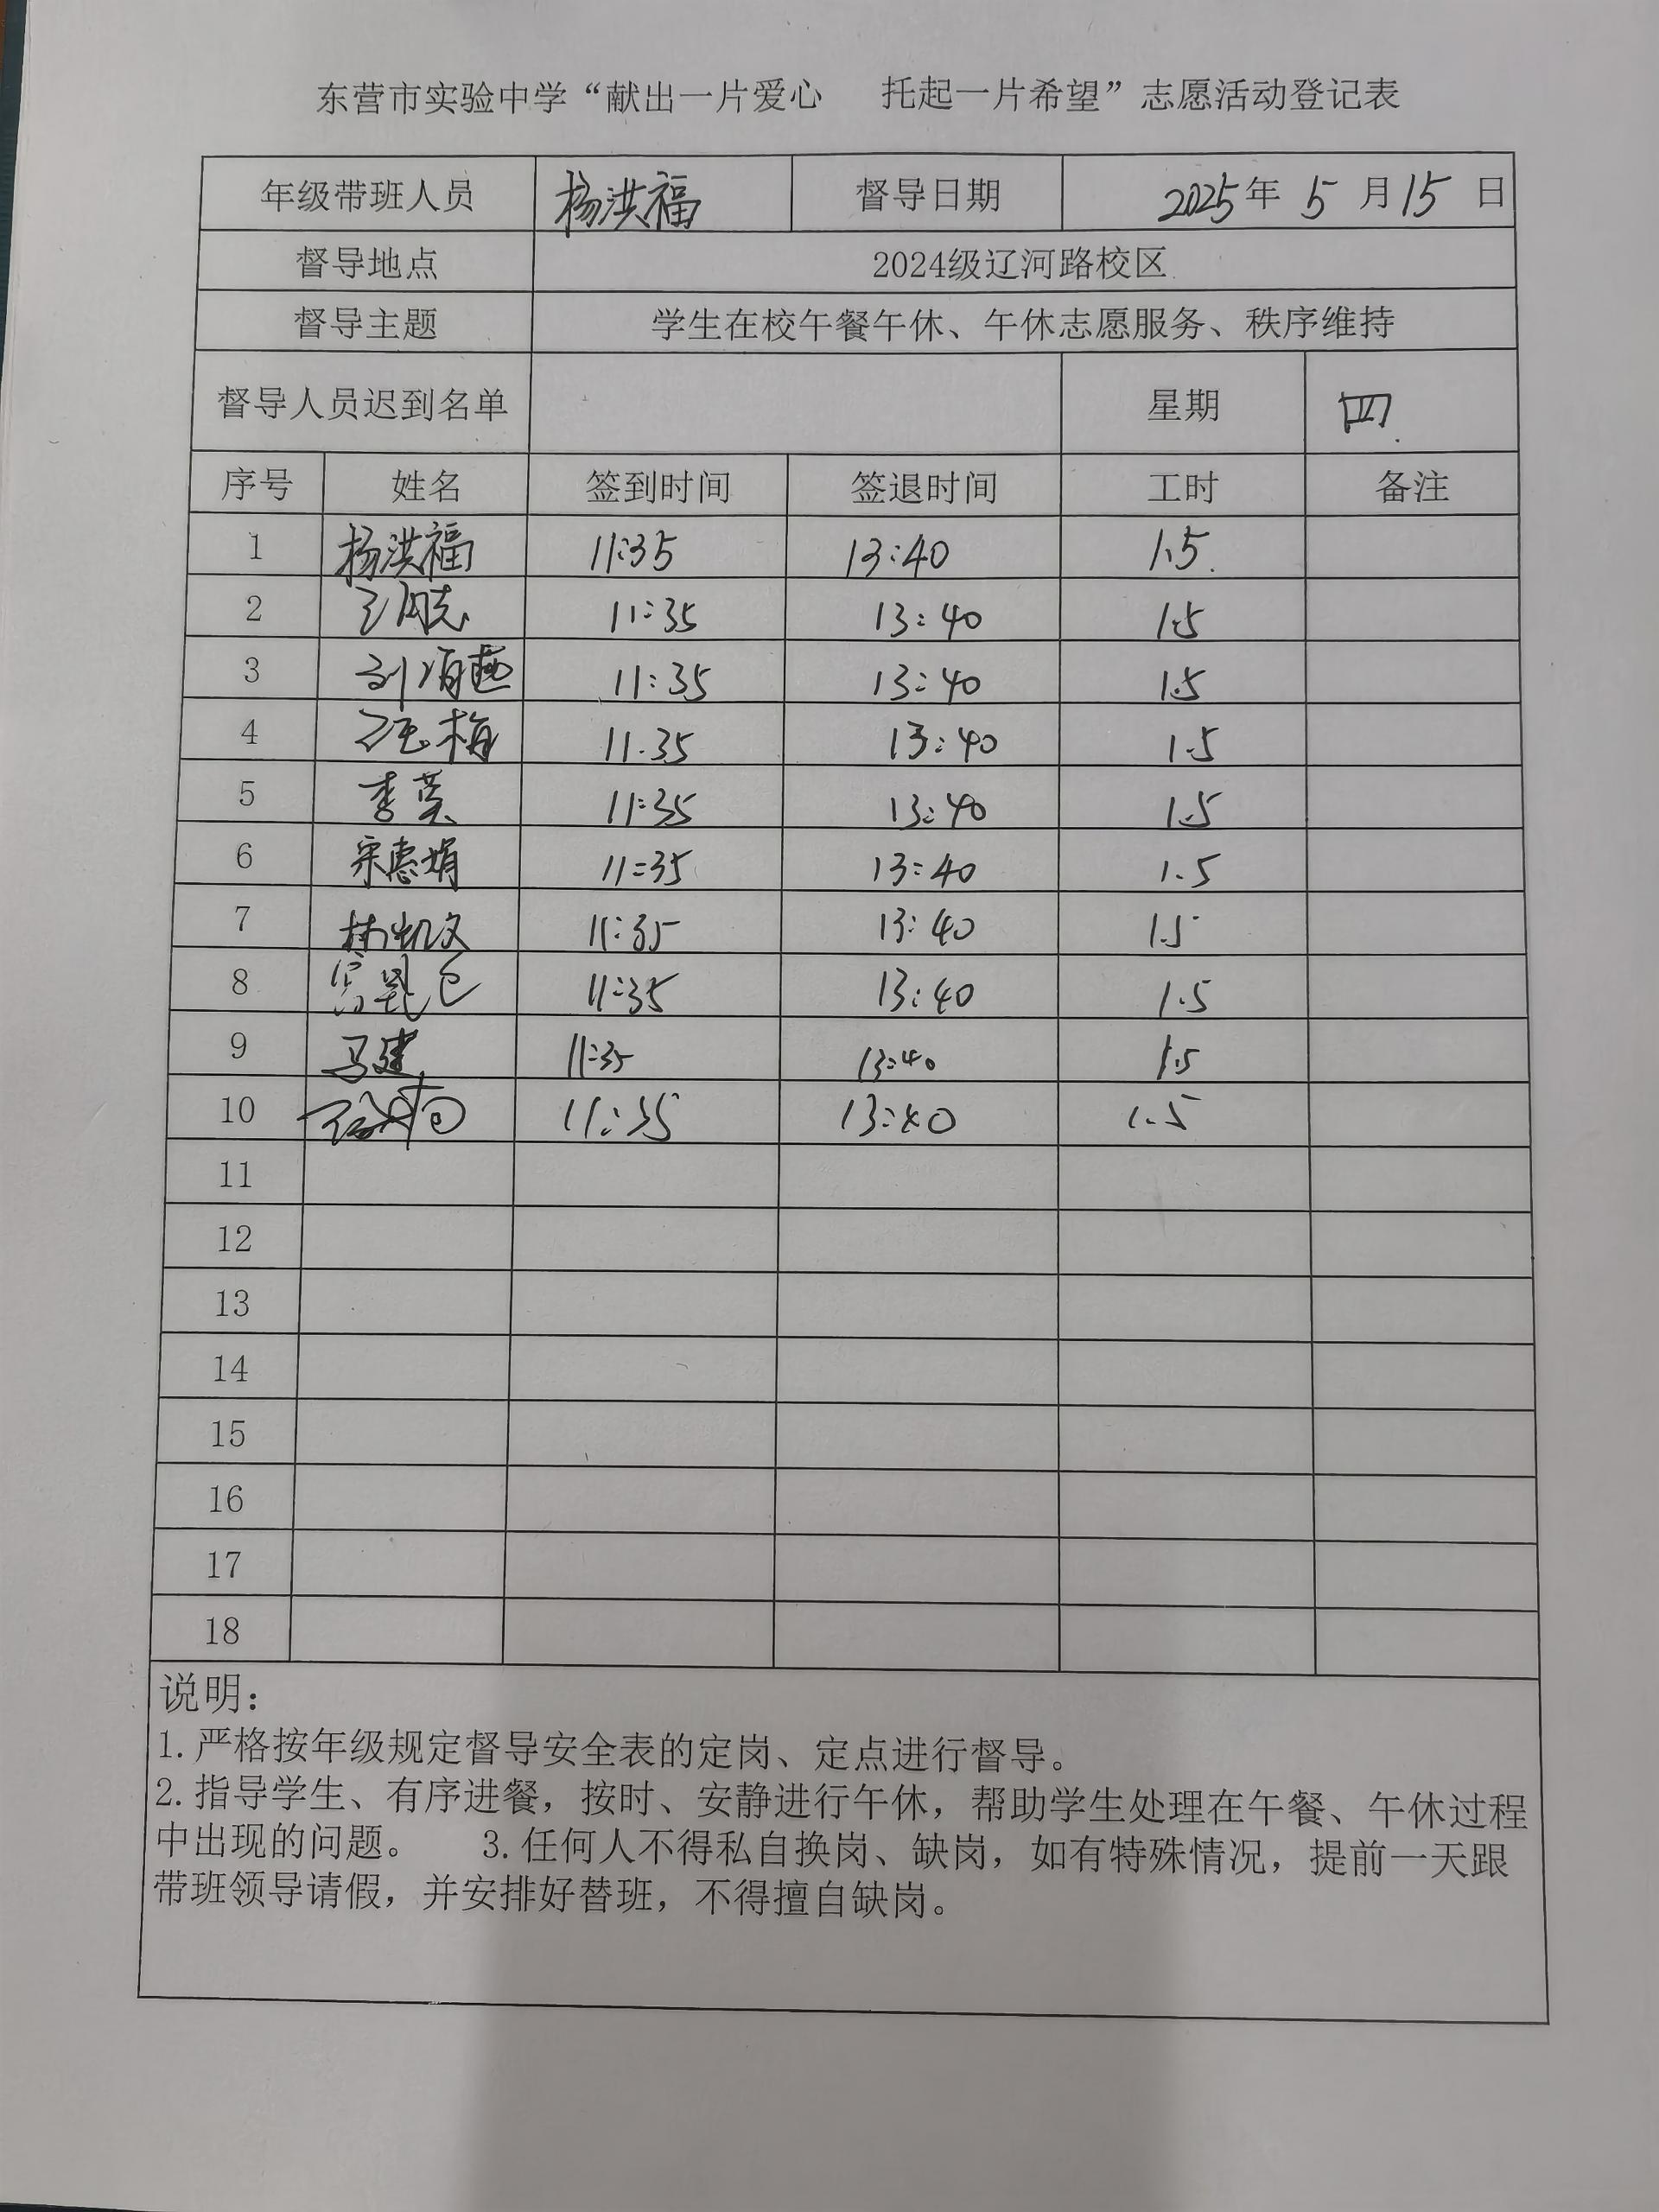 东营市实验中学“献出一片爱心 托起一片希望”志愿活动登记表
年级带班人员 杨洪福 督导日期 2025年 5 月 15 日
督导地点 2024级辽河路校区
督导主题 学生在校午餐午休、午休志愿服务、秩序维持
督导人员迟到名单 星期 四
序号 姓名 签到时间 签退时间 工时 备注
1 杨洪福 11:35 13:40 1.5
2 11:35 13:40 1.5
3 11:35 13:40 1.5
4 11:35 13:40 1.5
5 李英 11:35 13:40 1.5
6 宋惠娟 11:35 13:40 1.5
7 林凯文 11:35 13:40 1.5
8 11:35 13:40 1.5
9 马建 11:35 13:40 1.5
10 11:35 13:40 1.5
11
12
13
14
15
16
17
18
说明：
1.严格按年级规定督导安全表的定岗、定点进行督导。
2.指导学生、有序进餐，按时、安静进行午休，帮助学生处理在午餐、午休过程
中出现的问题。 3.任何人不得私自换岗、缺岗，如有特殊情况，提前一天跟
带班领导请假，并安排好替班，不得擅自缺岗。